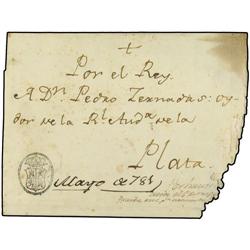 +
Por el Rey.
A Dn. Pedro Zernadas: oy-
dor de la Rl. Auda. de la
Plata.
Mayo de 781